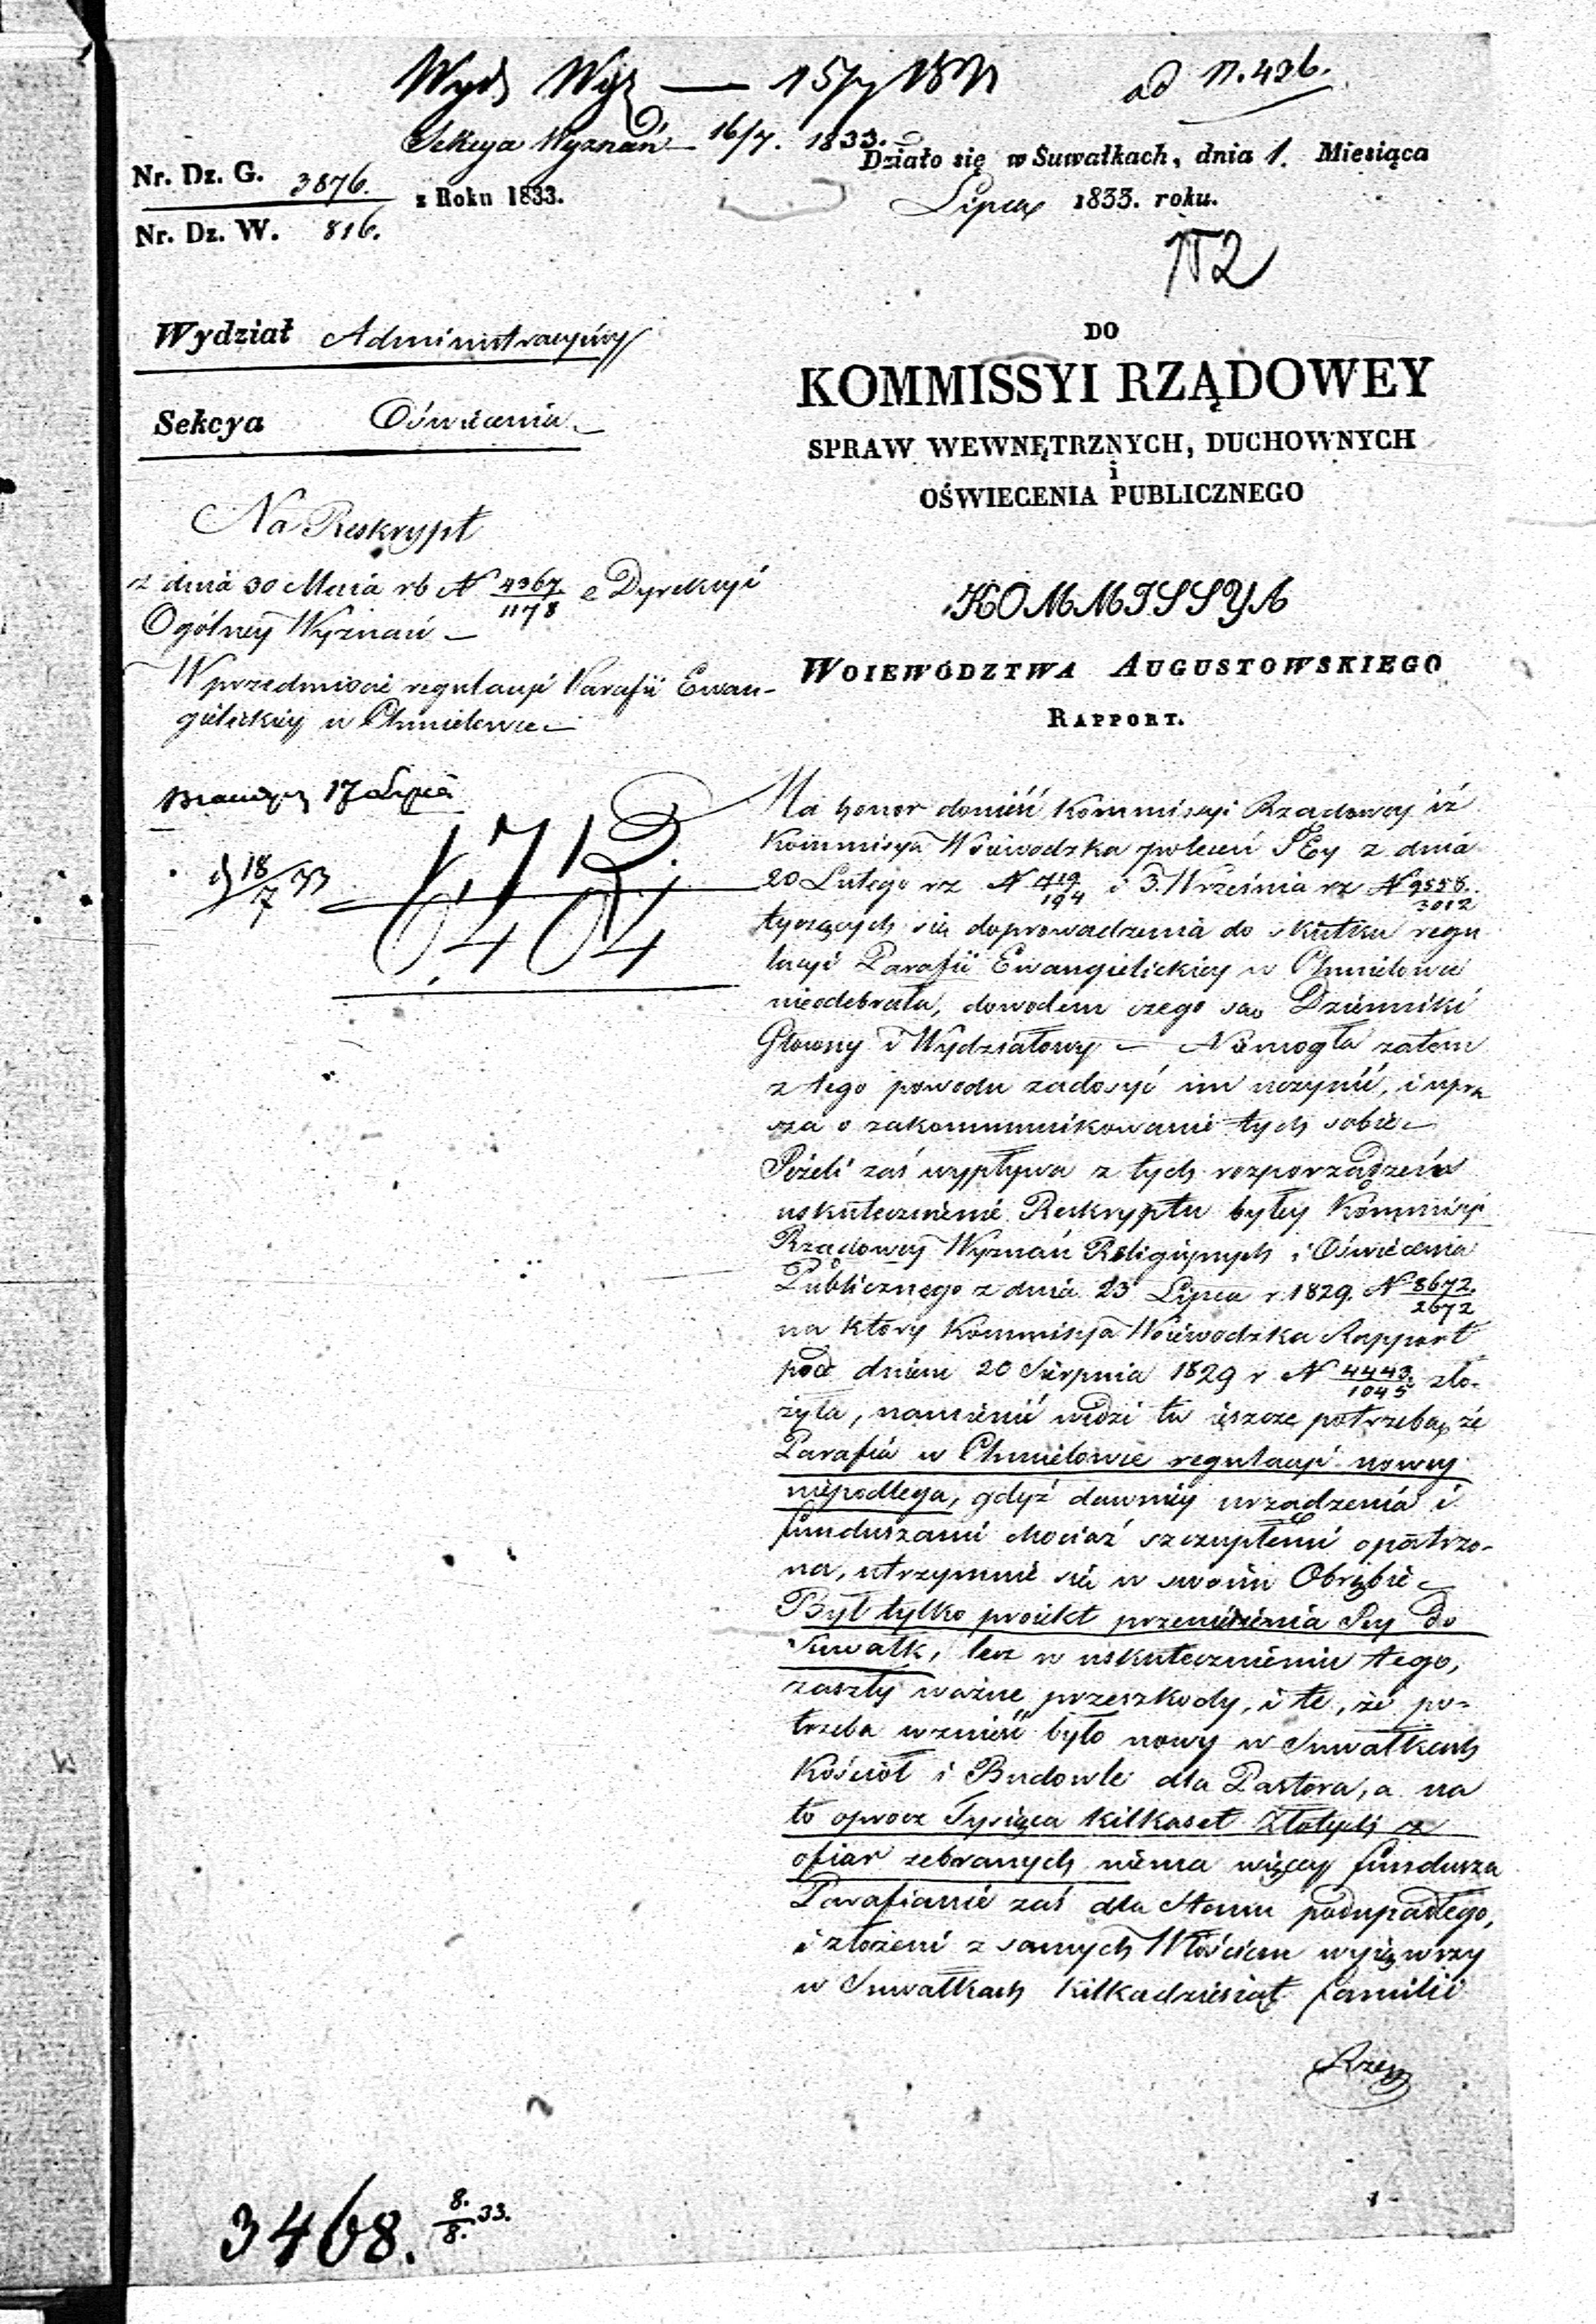 Wydz Wyz — 15/7 1833
ad N. 496.
Sekcya Wyznań — 16/7. 1833.
Działo się w Suwałkach, dnia 1. Miesiąca
Lipca 1833. roku.
Nr. Dz. G. 3876.
z Roku 1833.
Nr. Dz. W. 816.
152
Wydział Administracyiny
Sekcya Oświecenia
DO
KOMMISSYI RZĄDOWEY
SPRAW WEWNĘTRZNYCH, DUCHOWNYCH
i
OŚWIECENIA PUBLICZNEGO
Na Reskrypt
z dnia 30 Maia rb N 4367/1178 z Dyrekcyi
Ogólney Wyznań —
W przedmiocie regulacyi Parafii Ewan-
gielickiey w Chmielowce —
KOMMISSYA
WOIEWÓDZTWA AUGUSTOWSKIEGO
RAPPORT.
17 Lipca
18/7 33
1,712.
6,404
Ma honor donieść Kommissyi Rządowey iż
Kommissya Woiewodzka poleceń JEy z dnia
20 Lutego rz N 419/194 i 3. Września rz N 9558./3012
tyczących się doprowadzenia do skutku regu
lacyi Parafii Ewangielickiey w Chmielowce
nieodebrała, dowodem czego są Dzienniki
Głowny i Wydziałowy — Niemogła zatem
z tego powodu zadosyć im uczynić, i upra
sza o zakommunikowanie tych sobie —
Jeżeli zaś wypływa z tych rozporządzeń
uskutecznienie Reskryptu byłey Kommissyi
Rządowey Wyznań Religiynych i Oświecenia
Publicznego z dnia 23 Lipca r. 1829. N 8672./2672
na który Kommissya Woiewodzka Rapport
pod dniem 20 Sierpnia 1829 r N 4443./1045 zło-
żyła, namienić widzi tu ieszcze potrzebę, że
Parafia w Chmielowce regulacyi nowey
niepodlega, gdyż dawniey urządzenia i
funduszami chociaż szczupłemi opatrzo-
na, utrzymuie się w swoim Obrębie —
Był tylko proiekt przeniesienia Jey do
Suwałk, lecz w uskutecznieniu tego,
zaszły ważne przeszkody, i te, że po-
trzeba wznieść było nowy w Suwałkach
Kościół i Budowle dla Pastora, a na
to oprocz Tysiąca kilkaset Złotych z
ofiar zebranych niema więcey funduszu
Parafianie zaś dla Stanu podupadłego,
i złożeni z samych Włościan wyiąwszy
w Suwałkach kilkadziesiąt familii
3468. 8./8. 33.